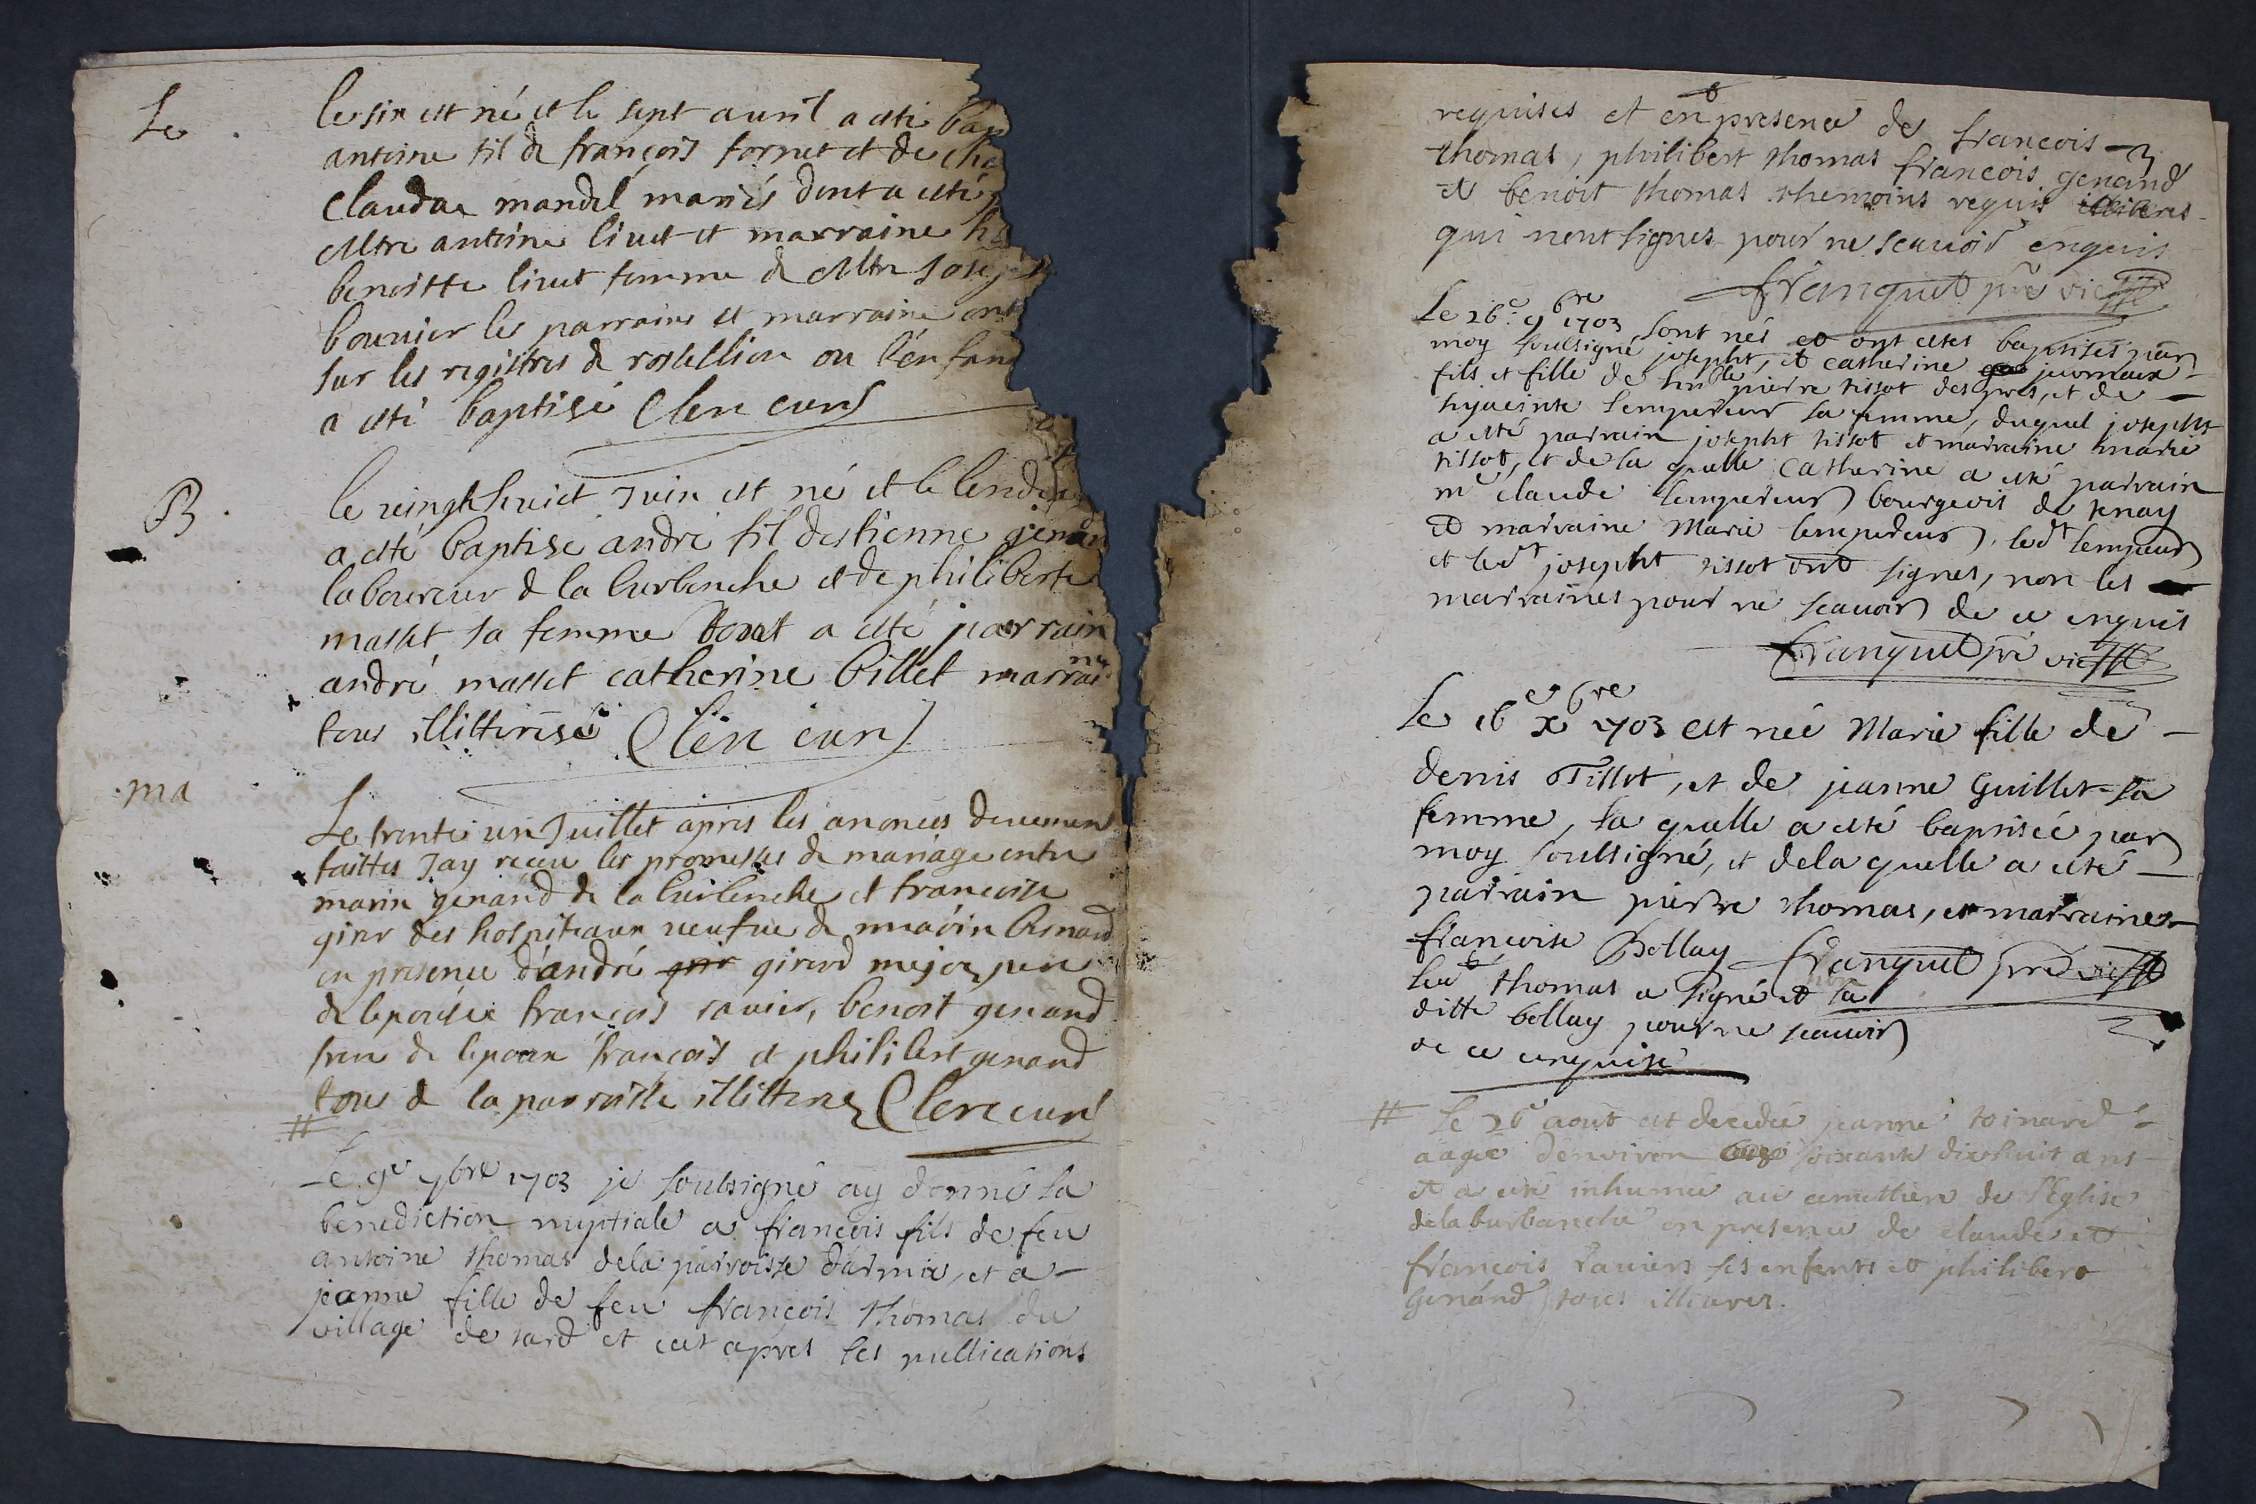 Le
le six est né et le sept auril a esté bap
antoine fil de françois fornet et de
claudae mandel mariés dont a esté
Mtre antoine livet et marraine h
benoitte livet femme de Mtre Josep
bouvier les parrains et marraine ont
sur les registres de rossillion ou l'enfan
a esté baptisé Clerc curé
B.
le vingt huict Juin est né et le lende
a esté baptise andré fil destienne genan
laboureur de la burbenche et de philiberte
masset sa femme dont a esté parrain
andré masset catherine billet marraine
tous illitterés Clerc curé
ma
Le trente un Juillet apres les anonces deuemen
faittes Jay receu les promesses de mariage entre
marin genand de la burbenche et francoise
girer des hospiteaux veufue de marin
en presence d'andré girerd
de lepousée françois ravier, benoit genand
frere de lepoux françois et philibert genand
tous de la parroisse illitteres Clerc curé
#
Le 9e 7bre 1703 je soubsigné ay donné la
benediction nuptiale a francois fils de feu
antoine thomas dela parroisse d'armix, et a
jeanne fille de feu françois thomas du
village de tard et cet apres les publications
requises et en presence de francois
thomas, philibert thomas francois genand
et benoit thomas themoins requis
qui nont signes pour ne scauoir enquis
franquet pre vic
Le 26e 9bre 1703 sont nés et ont estes baptisés par
moy soubsigné josepht, et catherine jeumeaux
fils et fille de hnble pierre tissot des pres, et de
hyacinte lempereur sa femme, duquel josepht
a esté parrain josepht tissot et marraine marie
tissot, et de la quelle catherine a esté parrain
me claude lempereur bourgeois de tenay
et marraine Marie lempereur, ledt lempereur
et ledt josepht tissot ont signes, non les
marraines pour ne scauoir de ce enquis
franquet pre vic
Le 16e xbre 1703 est née Marie fille de
denis Tissot, et de jeanne Guillet sa
femme, la quelle a esté baptisée par
moy soubsigné, et dela quelle a esté
parrain pierre thomas, et marraine
françoise Bollay franquet pre vic
led thomas a signé et la
ditte bollay pour ne scauoir
de ce enquise
# Le 26e aout est decedée jeanne toinard
aagée denviron soixante dixhuit ans
et a esté inhumée au cemettiere de l'Eglise
dela burbanche en presence de claude et
francois raviers ses enfents et philibert
Genand tous illiteres.